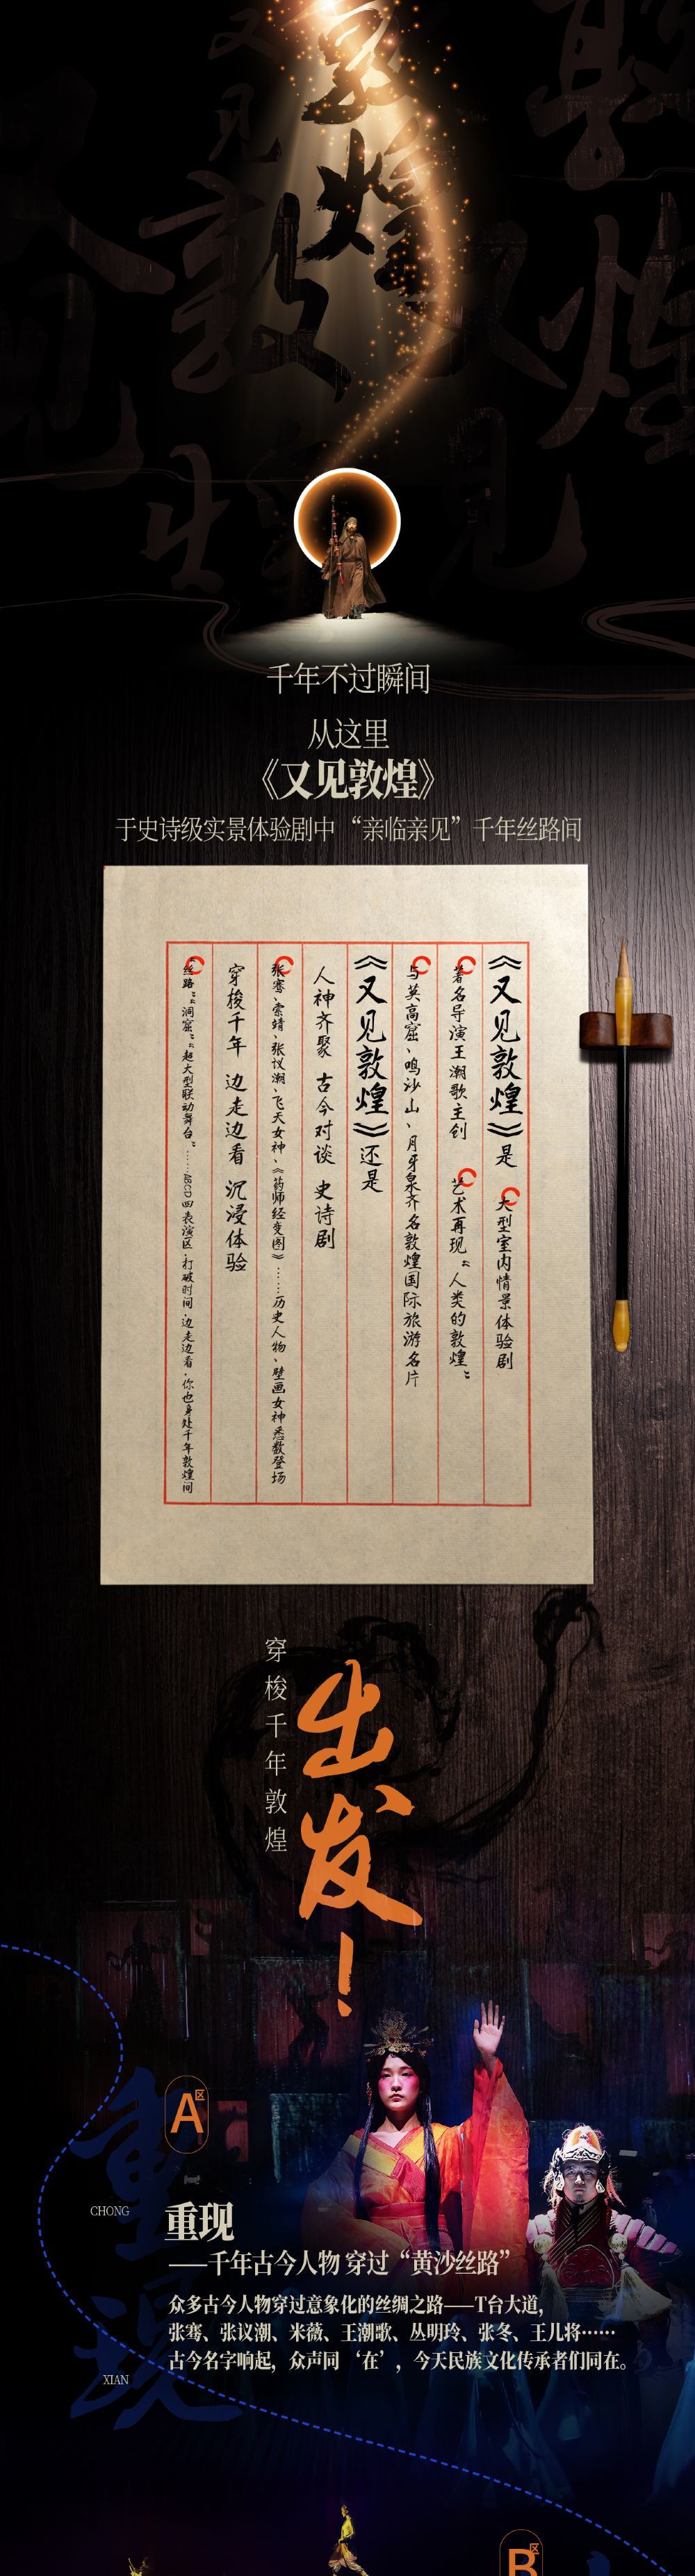 又见敦煌
千年不过瞬间
从这里
《又见敦煌》
于史诗级实景体验剧中 “亲临亲见” 千年丝路间
《又见敦煌》是 大型室内情景体验剧
著名导演王潮歌主创 艺术再现“人类的敦煌”
与莫高窟、鸣沙山、月牙泉齐名敦煌国际旅游名片
《又见敦煌》还是
人神齐聚 古今对谈 史诗剧
张骞、索靖、张议潮、飞天女神、《药师经变图》……历史人物、壁画女神悉数登场
穿梭千年 边走边看 沉浸体验
“丝路”“洞窟”“超大型联动舞台”……ABCD四表演区,打破时间,边走边看,你也身处千年敦煌间
穿梭千年敦煌
出发!
A区
重现
CHONG
XIAN
重现
——千年古今人物 穿过“黄沙丝路”
众多古今人物穿过意象化的丝绸之路——T台大道,
张骞、张议潮、米薇、王潮歌、丛明玲、张冬、王儿将……
古今名字响起，众声同 ‘在’ ，今天民族文化传承者们同在。
B区